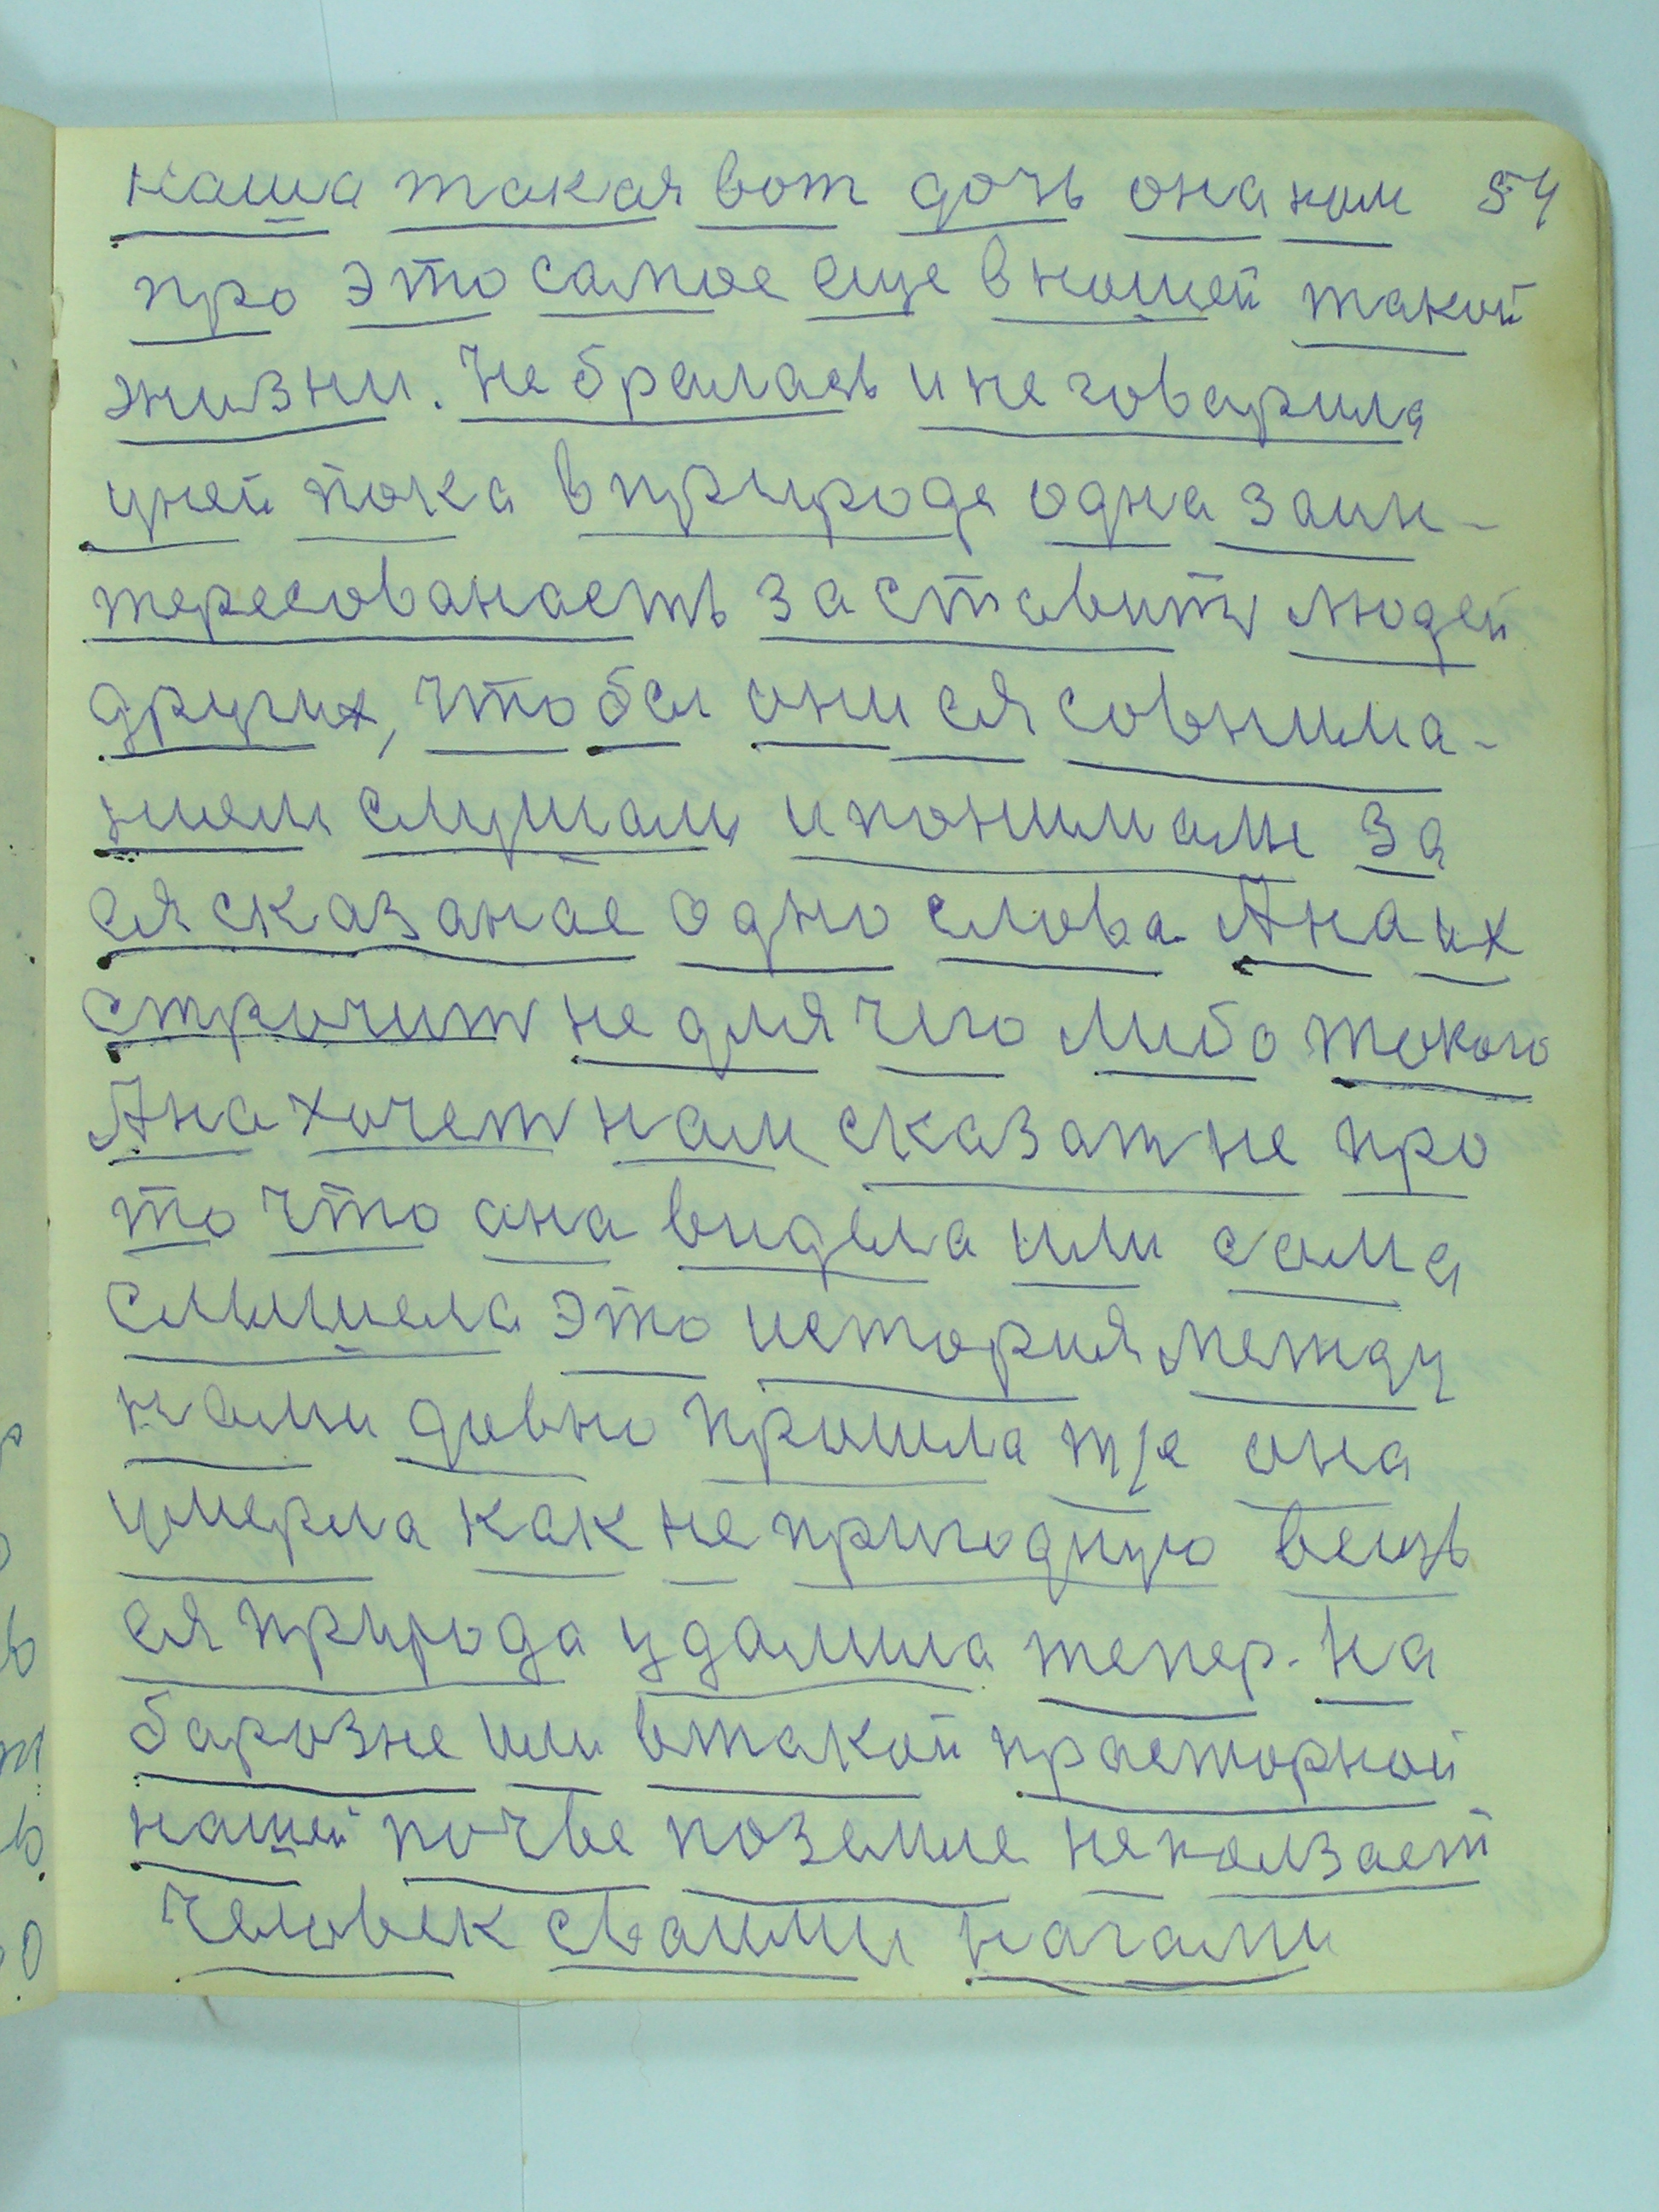 наша такая вот дочь она нам 54
про это самое еще в нашей такой
жизни. не бралась и не говарила
уней пока в природе одна заин-
тересованасть заставить людей
других, что бы они ея совнима-
нием слушали и понимали за
ея сказаное одно слова Ана их
стрючит не для чего либо токого
Ана хочет нам сказат не про
то что она видела или сама
слышела это история между
нами давно прошла же она
умерла как не пригодную вещь
ея природа удалила тепер. на
барозне или втакой прасторной
нашей почве поземле не ползает
человек сваими нагами